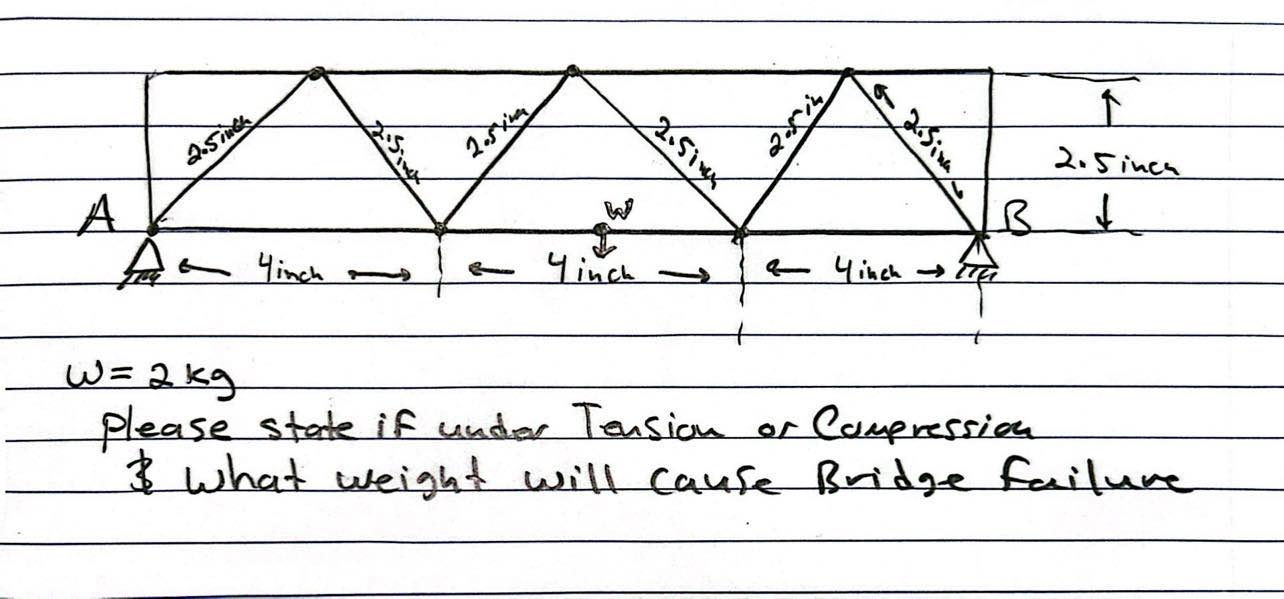 2.5 inch
2.5 inch
2.5 in
2.5 inch
2.5 in
2.5 inch
2.5 inch
A
W
B
4 inch
4 inch
4 inch
W = 2 kg
Please state if under Tension or Compression
& What weight will cause Bridge failure